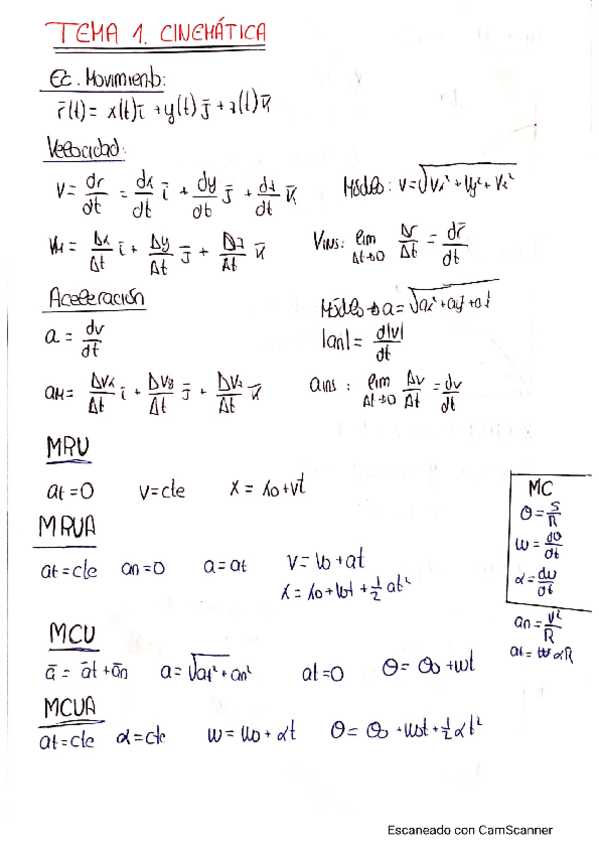 TEMA 1. CINEMÁTICA
Ec. Movimiento:
r̄(t) = x(t)ī + y(t)j̄ + z(t)k̄
Velocidad:
V = dr/dt = dx/dt ī + dy/dt j̄ + dz/dt k̄ Módulo: v = √(Vx² + Vy² + Vz²)
Vm = Δx/Δt ī + Δy/Δt j̄ + Δz/Δt k̄ Vins: lim Δt→0 Δr/Δt = dr̄/dt
Aceleración Módulo → a = √(ax² + ay² + az²)
a = dv/dt |an| = d|v|/dt
am = ΔVx/Δt ī + ΔVy/Δt j̄ + ΔVz/Δt k̄ ains: lim Δt→0 Δv/Δt = dv/dt
MRU
at = 0 v = cte x = xo + vt
MRUA
at = cte an = 0 a = at v = vo + at
x = xo + vot + 1/2 at²
MC
θ = S/R
ω = dθ/dt
α = dω/dt
an = v²/R
at = αR
MCU
ā = āt + ān a = √(at² + an²) at = 0 θ = θo + ωt
MCUA
at = cte α = cte ω = ωo + αt θ = θo + ωot + 1/2 αt²
Escaneado con CamScanner